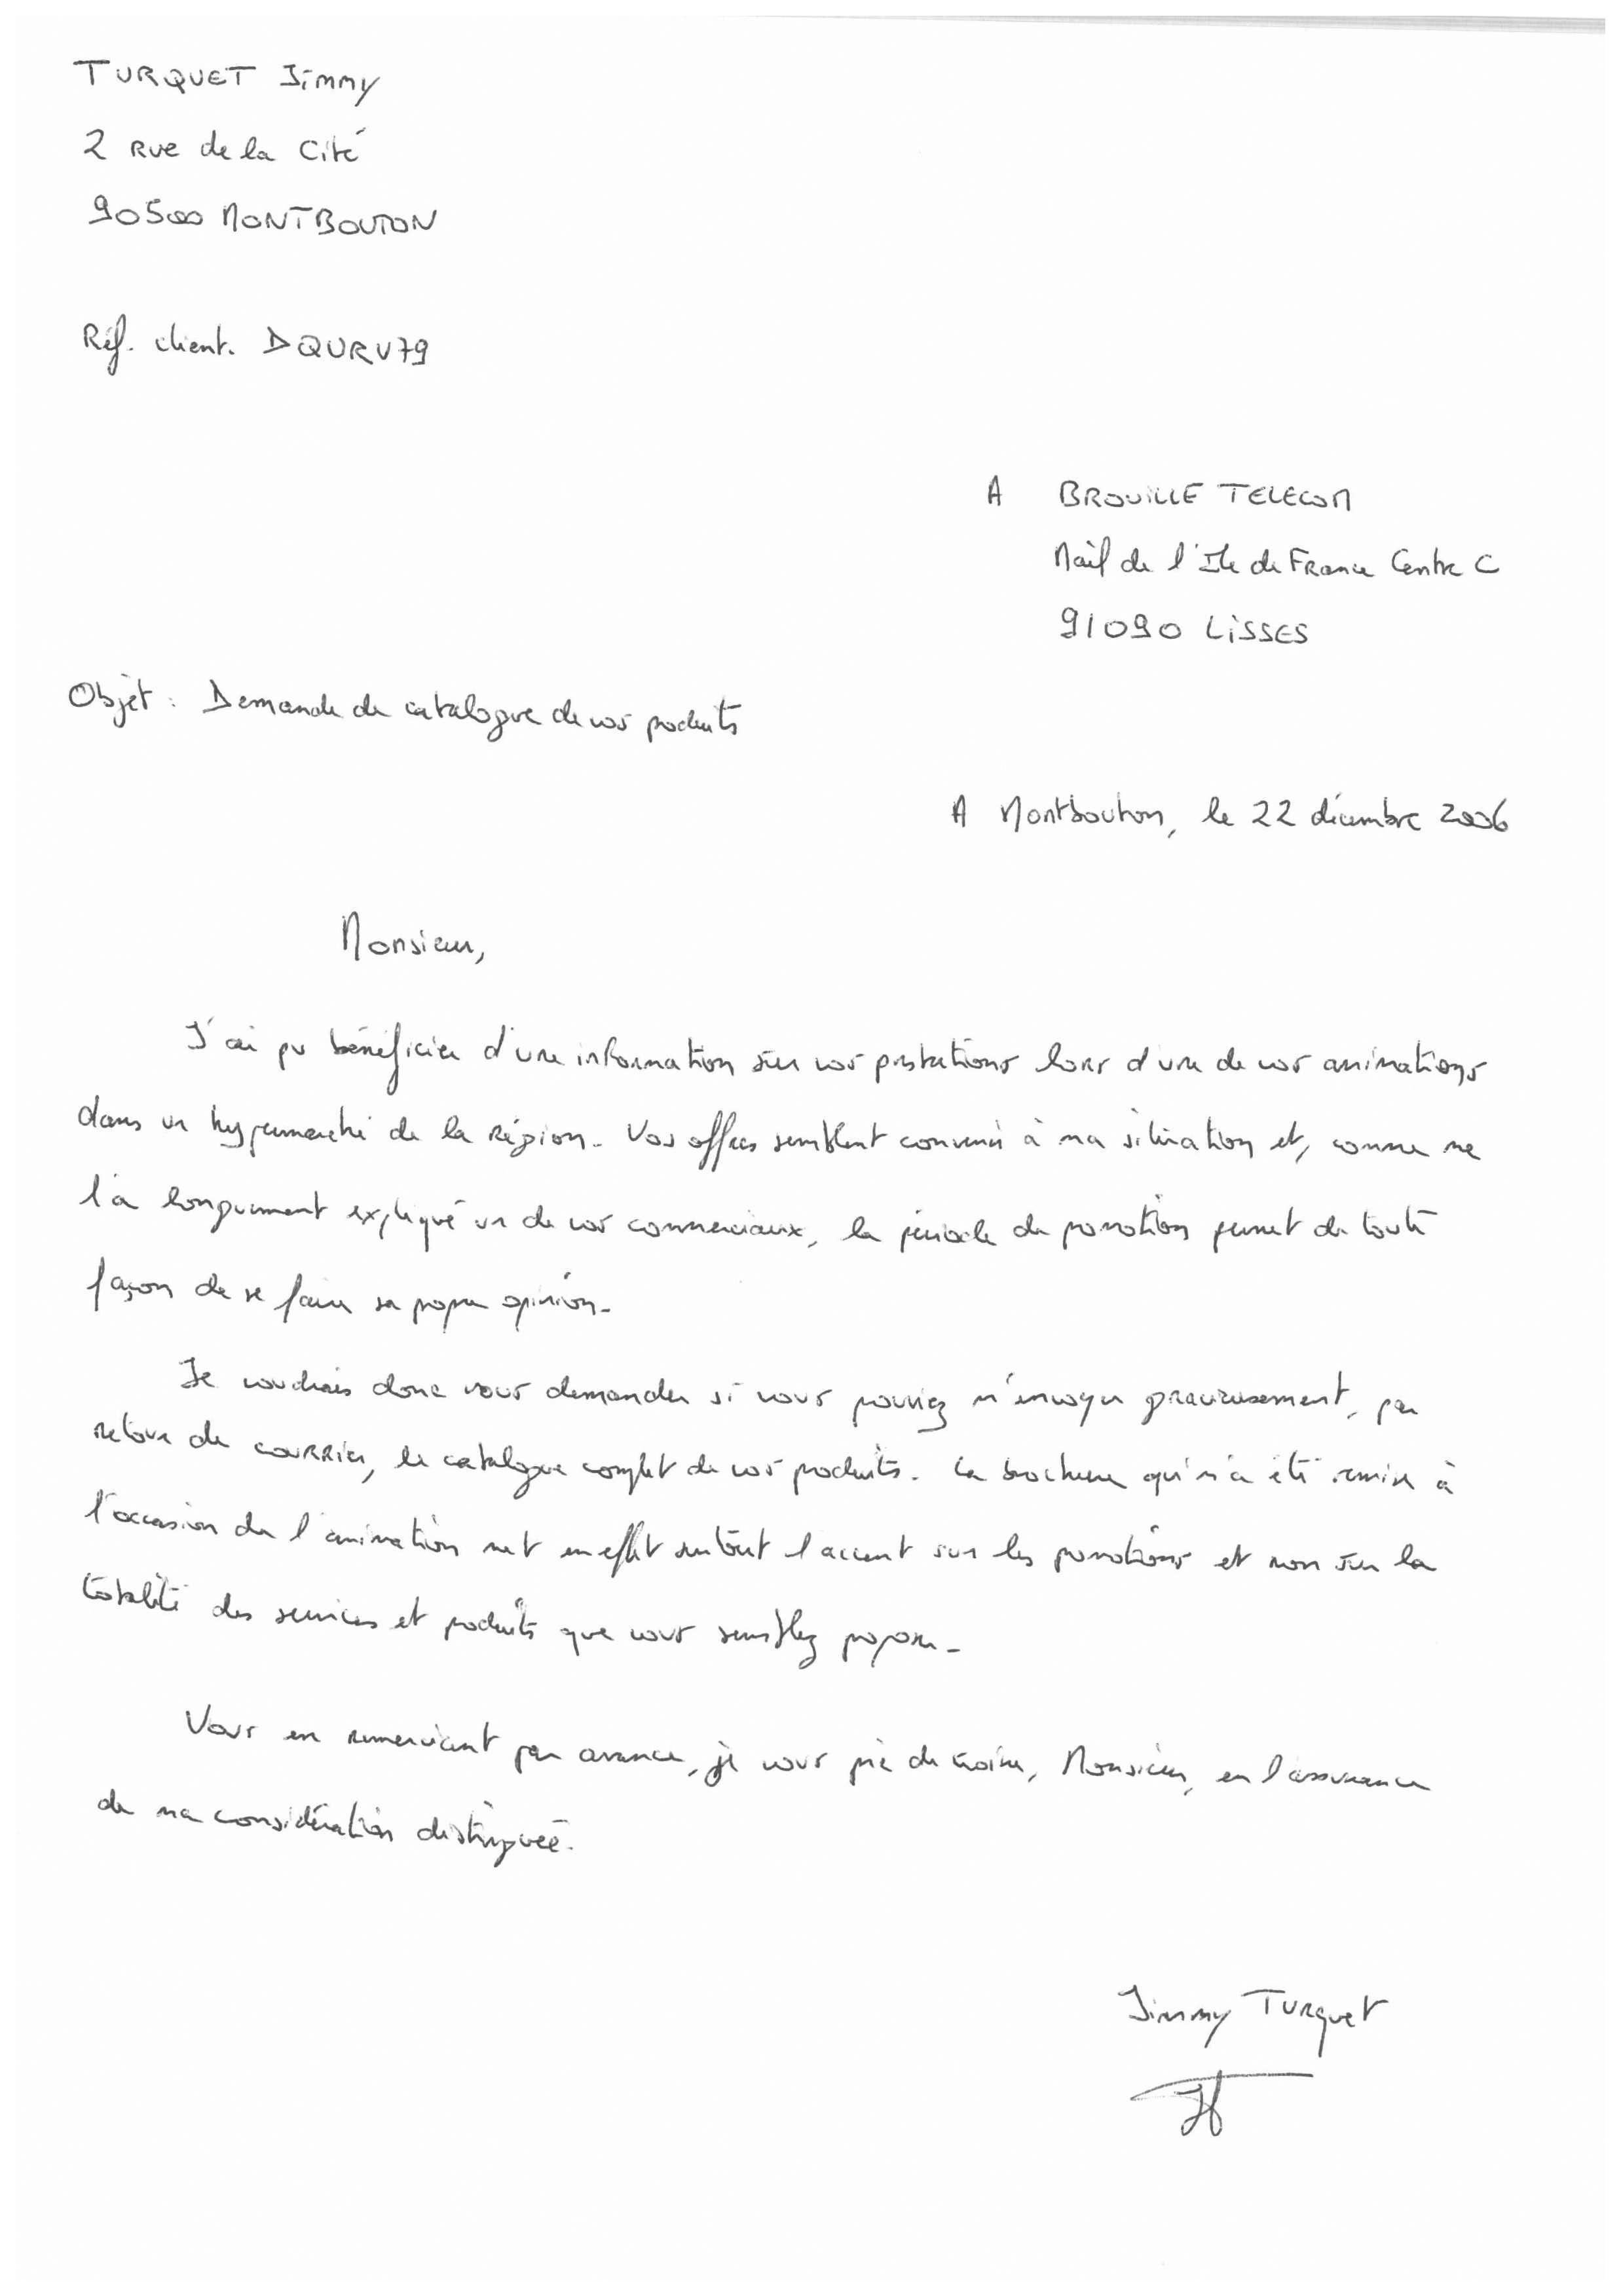 TURQUET Jimmy
2 Rue de la Cité
90500 MONTBOUTON
Réf. client. DQURV79
A BROUILLE TELECOM
Mail de l'Ile de France Centre C
91090 LISSES
Objet : Demande de catalogue de vos produits
A Montbouton, le 22 décembre 2006
Monsieur,
J'ai pu bénéficier d'une information sur vos prestations lors d'une de vos animations
dans un hypermarché de la région. Vos offres semblent convenir à ma situation et, comme me
l'a longuement expliqué un de vos commerciaux, la période de promotion permet de toute
façon de se faire sa propre opinion.
Je voudrais donc vous demander si vous pouviez m'envoyer gracieusement, par
retour de courrier, le catalogue complet de vos produits. La brochure qui m'a été remise à
l'occasion de l'animation met en effet surtout l'accent sur les promotions et non sur la
totalité des services et produits que vous semblez proposer.
Vous en remerciant par avance, je vous prie de croire, Monsieur, en l'assurance
de ma considération distinguée.
Jimmy Turquet
JT